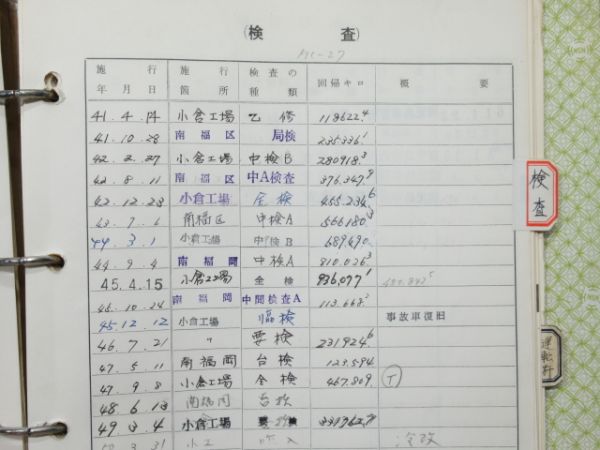 （検 査）
施行年月日 施行箇所 検査の種類 回帰キロ 概要
41.4.14 小倉工場 乙修 118622.4
41.10.28 南福区 局検 235336.1
42.2.27 小倉工場 中検B 280918.3
42.8.11 南福区 中A検査 376,347.9
42.12.23 小倉工場 全検 455.236.6
43.7.6 南福区 中検A 566180.3
44.3.1 小倉工場 中検B 689490.
44.9.4 南福岡 中検A 810.026.3
45.4.15 小倉工場 全検 936,077.1
45.10.24 南福岡 中間検査A 113.668.2
45.12.12 小倉工場 臨検 事故車復旧
46.7.21 〃 要検 231924.6
47.5.11 南福岡 台検 123.594
47.9.8 小倉工場 全検 467.809. T
48.6.13 南福岡 台検
49.3.4 小倉工場
3.31 小工 入 冷改
検査
運転杆